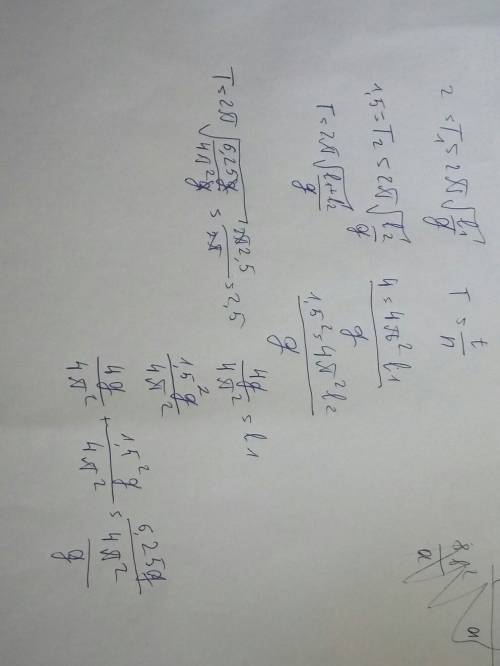 2 = T₁ = 2π√(l₁/g)    T = t/n
1,5 = T₂ = 2π√(l₂/g)    4 = 4π² l₁/g
T = 2π√((l₁+l₂)/g)    1,5² = 4π² l₂/g
4g/4π² = l₁
T = 2π√(6,25g/4π²g) = π2,5/π = 2,5    1,5²g/4π²
4g/4π² + 1,5²g/4π² = 6,25g/4π²/g